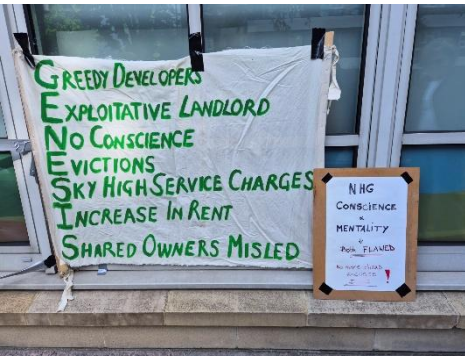 GREEDY DEVELOPERS
EXPLOITATIVE LANDLORD
NO CONSCIENCE
EVICTIONS
SKY HIGH SERVICE CHARGES
INCREASE IN RENT
SHARED OWNERS MISLED
NHG
CONSCIENCE
&
MENTALITY
Both FLAWED
!